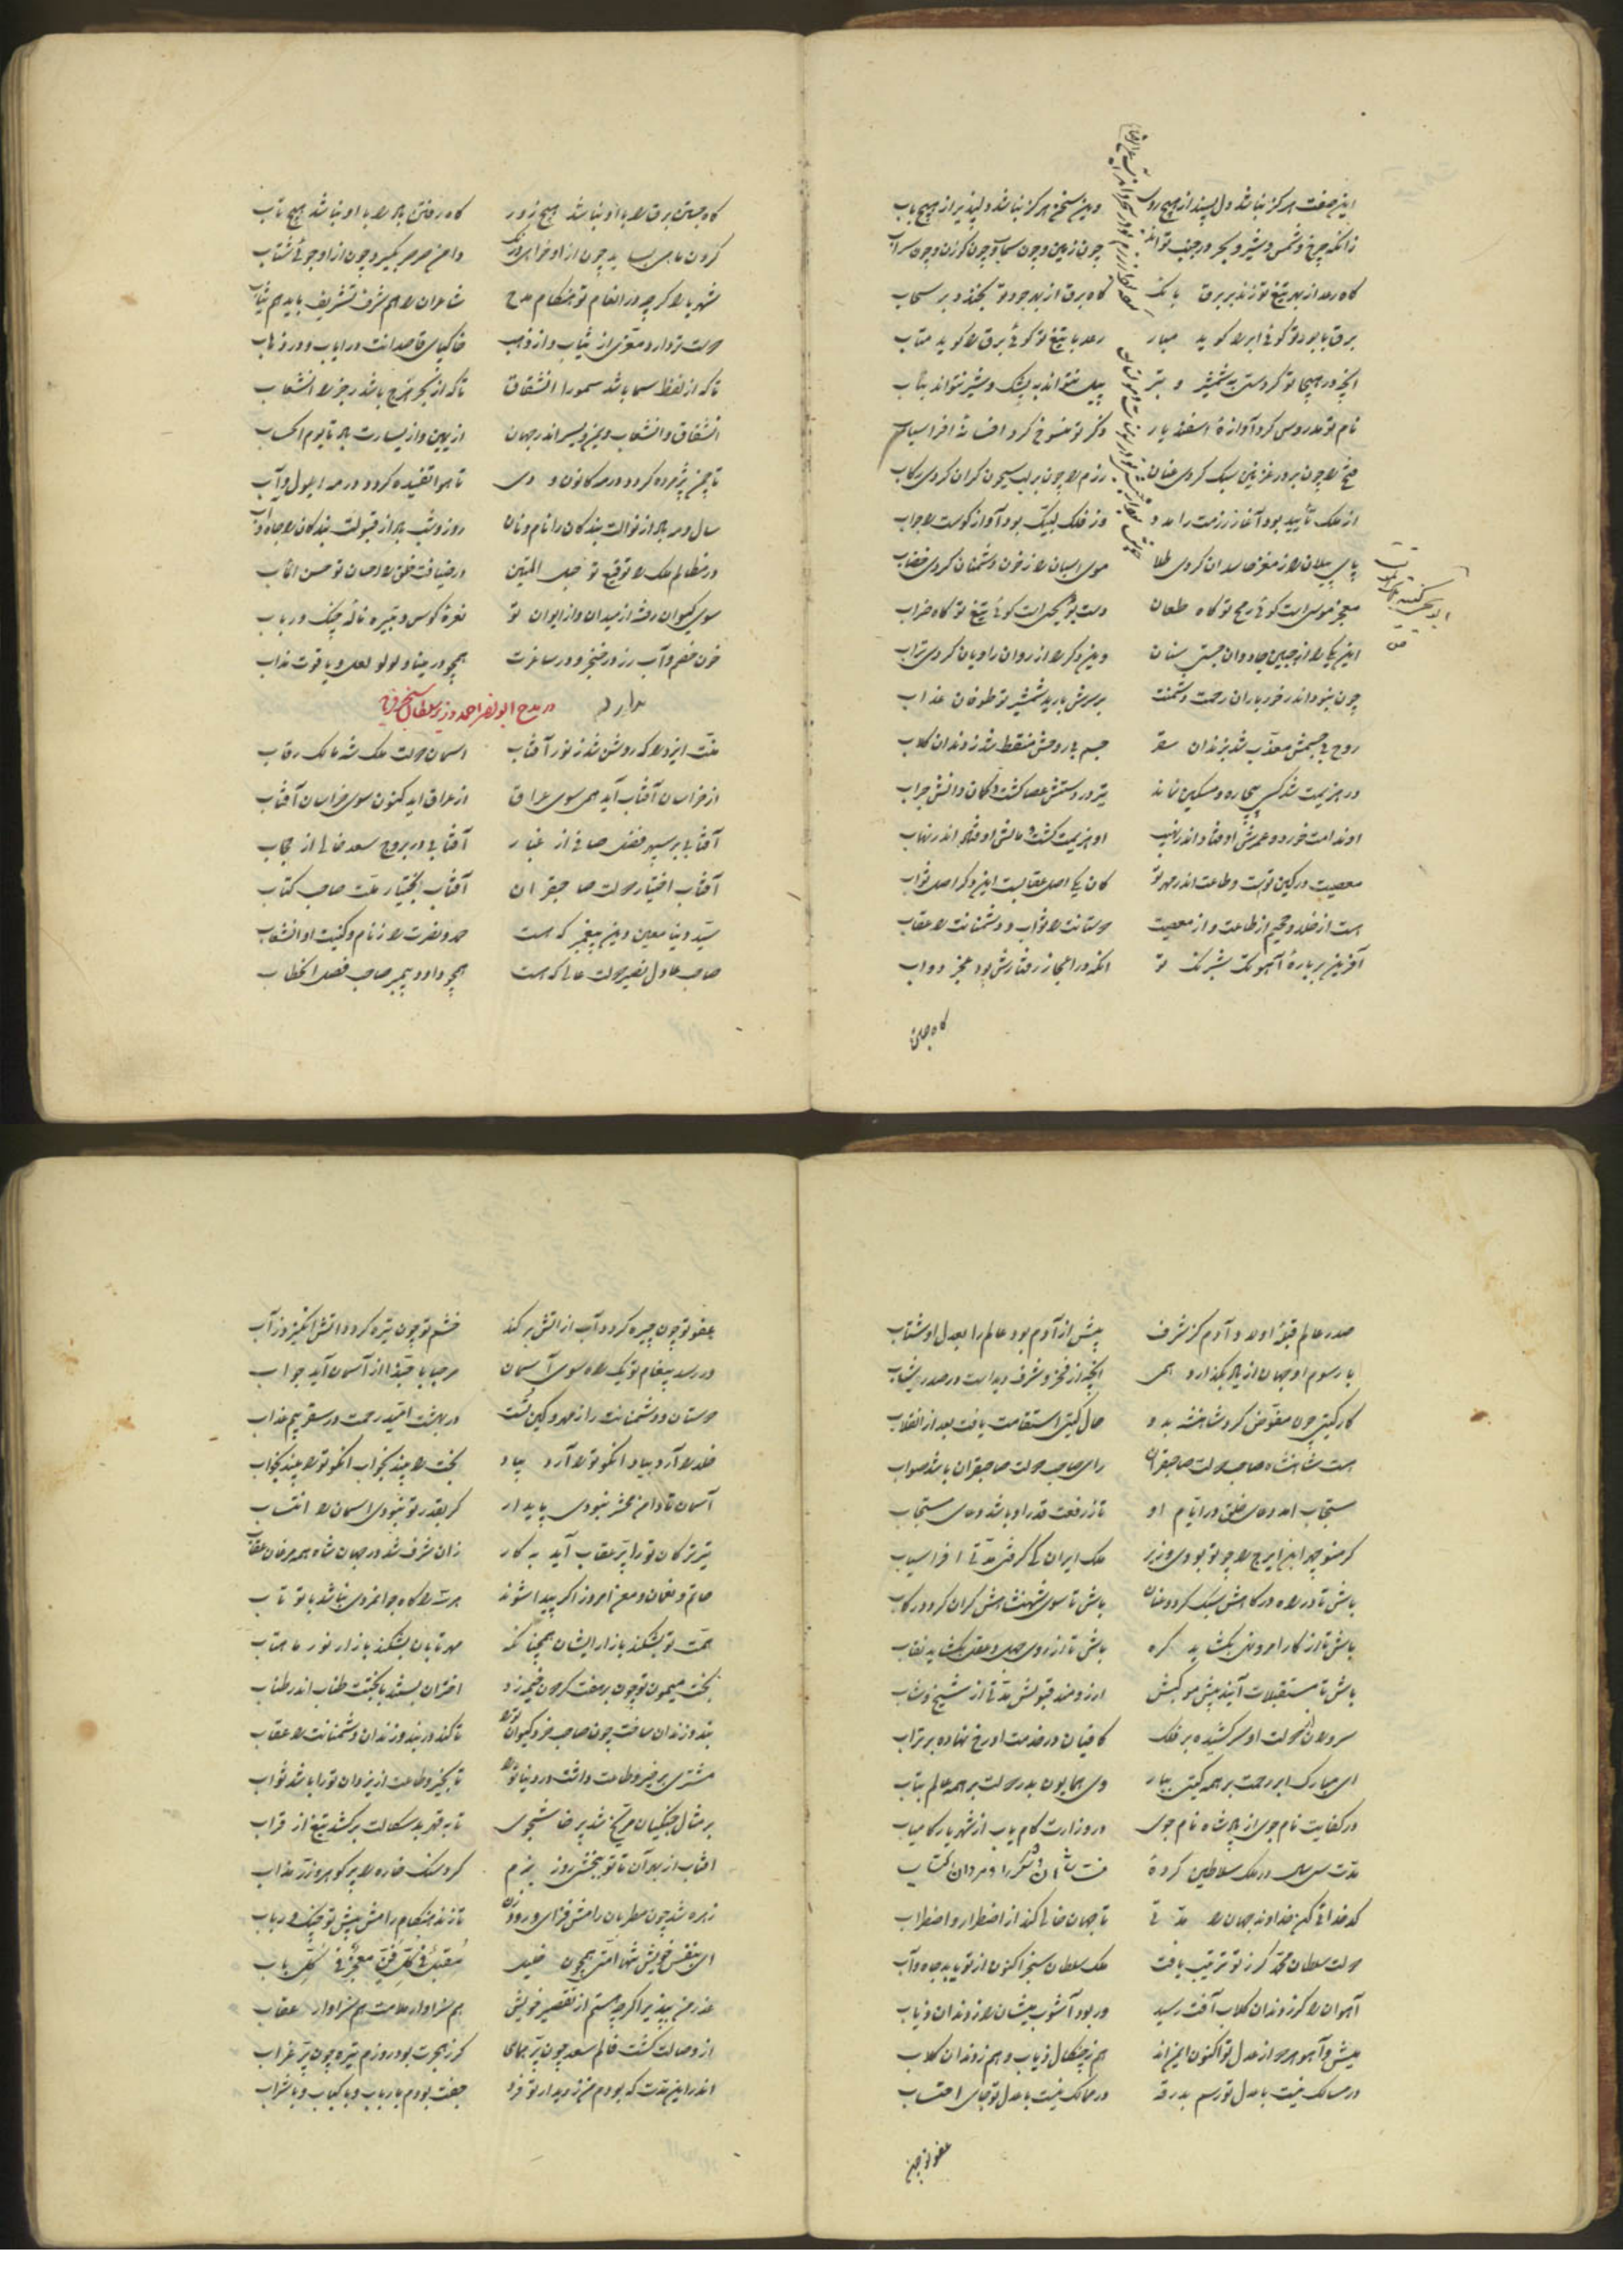 این صفت هرگز نباشد دل پسند از هیچ روی وین سخن هرگز نباشد دلپذیر از هیچ باب
زانکه چرخ و شمس و شیر و بحر در جنب تواند چون زمین و چون سها و چون گوزن و چون سراب
گاه رعد از بهر تیغ تو زند بر برق بانگ گاه برق از بهر جود تو بخندد بر سحاب
برق با جود تو گوئی ابر را گوید مبار رعد با تیغ تو گوئی برق را گوید متاب
آنچه در هیجا تو کردستی به شمشیر و بتیر پیل نتواند به یشک و شیر نتواند بناب
نام تو مدروس کرد آوازهٔ اسفندیار ذکر تو منسوخ کرد افسانهٔ افراسیاب
فتح را چون بر در غزنین سبک کردی عنان رزم را چون بر لب سیحون گران کردی رکاب
از ملک تأیید بود آغاز رزمت را مدد وز فلک لبیک بود آواز کوست را جواب
پای پیلان را ز مغز حاسدان کردی طلا موی اسبان را ز خون دشمنان کردی خضاب
معجز موسی است گوئی رمح تو گاه طعان دست تو گوئی تیغ تو گاه ضراب
این یکی را از جبین جادوان جستی سنان وین دگر را از روان راویان کردی تراب
چون نبود اندر خور باران رحمت دشمنت بر سرش بارید شمشیر تو طوفان عذاب
روح بی جسمش معذب شد بزندان سقر جسم بی روحش منقط شد ز دندان کلاب
در هزیمت شد کسی بیچاره و مسکین نماند تیر در دستش عصا گشت و کمان وانش جراب
او ندامت خورد و عمرش اوفتاد اندر نهیب او هزیمت گشت و مالش اوفتاد اندر نهاب
معصیت در کین توست و طاعت اندر مهر تو کان یکی اصل عقابست این دگر اصل ثواب
هست از خلد و جحیم از طاعت و از معصیت دوستانت را ثواب و دشمنانت را عقاب
آفرین بر بارهٔ آهو تک شبرنگ تو آنکه در اعجاز رفتارش بود عجز دواب
گاه جستن
گاه جستن برق را با او نباشد هیچ زور گاه رفتن باد را با او نباشد هیچ تاب
گردن ماهی بساید چون از او خواهی درنگ دامن صرصر بگیرد چون از او جوئی شتاب
شهریارا گرچه در انعام تو هنگام مدح شاعران را هم شرف تشریف باید هم ثیاب
خاکپای قاصدانت در ایاب و در ذهاب
تا که از لفظ سما باشد سمو را انشقاق تا که از بحر هزج باشد رجز را انشعاب
انشقاق و انشعاب و یمن و یسر اندر جهان از یمین و از یسارت باد تا یوم الحساب
تا چمن پژمرده گردد در مه کانون و دی تا هوا تفسیده گردد در مه ایلول و آب
سال و مه باد از نوالت بندگان را نام و نان روز و شب باد از قبولت بندگان را جاه و آب
در مظالم ملک را توقیع تو حبل المتین در ضیافت خلق را احسان تو حسن المآب
سوی کیوان رفته از میدان و از ایوان تو نعرهٔ کوس و تبیره نالهٔ چنگ و رباب
خون خصم و آب رز در خنجر و در ساغرت همچو در مینا و لولو لعل و یاقوت مذاب
در مدح ابونصر احمد وزیر سلطان سنجر
منت ایزد را که روشن شد ز نور آفتاب آسمان دولت ملک شه مالک رقاب
از خراسان آفتاب آید همی سوی عراق از عراق آید کنون سوی خراسان آفتاب
آفتابی بر سپهر فضل صافی از غبار آفتابی در بروج سعد خالی از حجاب
آفتاب اختیار دولت صاحبقران آفتاب بختیار ملت صاحب کتاب
سید دنیا معین دین پیغمبر که هست حمد و نصرت را ز نام و کنیت او انشعاب
صاحب عادل نصیر دولت عالی که هست همچو داود پیمبر صاحب فصل الخطاب
صدر عالم قبلهٔ اولاد آدم کز شرف پیش از آدم بود عالم را بعدل او شتاب
با رسوم او جهان از باد بگذارد همی آنچه از فخر و شرف دیدست در صدر شباب
کار گیتی چون مفوض کرد شاهنشه بدو حال گیتی استقامت یافت بعد از انقلاب
هست شاهنشاه صاحب دولت صاحبقران رای صاحب دولت صاحبقران باشد صواب
مستجاب آمد دعای خلق در ایام او تا ز رفعت قدر او باشد دعای مستجاب
گر منوچهر ابن ایرج را چو تو بودی وزیر ملک ایران کی گرفتی مدتی افراسیاب
باش تا در راه درگاهش سبک گردد عنان باش تا سوی شهنشاهش گران گردد رکاب
باش تا از کار امر و نهی بگشاید گره باش تا از روی حل و عقد بگشاید نقاب
باش تا مستقبلان آیند پیش موکبش آرزومند قبولش مدتی از شیخ و شاب
سروران از دولت او سر کشیده بر فلک کافیان در خدمت او رخ نهاده بر تراب
ای مبارک ابر رحمت بر همه گیتی ببار وی همایون بدر دولت بر همه عالم بتاب
در کفایت نام جوی از پادشاه نام جوی در وزارت کام یاب از شهریار کامیاب
مدت سی سال در ملک سلاطین کردهٔ
کدخدائی کن خداوند جهان را مدتی تا جهان خالی کند از اضطرار و اضطراب
دولت سلطان محمد گر ز تو ترتیب یافت ملک سلطان سنجر اکنون از تو یابد جاه و آب
آهوان را گر ز دندان کلاب آفت رسید ور بود آشوب میشان را ز دندان ذیاب
میش و آهو هر دو از عدل تو اکنون ایمن اند هم ز چنگال ذیاب و هم ز دندان کلاب
در مسالک نیست با عدل تو رسم بدرقه در ممالک نیست با عدل تو جای احتساب
عفو تو چون
عفو تو چون چیره گردد آب از آتش برکند خشم تو چون تیره گردد آتش انگیزد ز آب
ور رسد پیغام تو یک راه سوی آسمان مرحبا یا حبذا از آسمان آید جواب
دوستان و دشمنانت را ز مهر و کین تست در بهشت امید رحمت در سقر بیم عذاب
خلد را آرد بیاد آنکو تو را آرد بیاد بخت را بیند بخواب آنکو تو را بیند بخواب
آسمان تا دامن محشر نبودی پایدار گر بقدر تو نبودی آسمان را انتساب
تیر ترکان تو را پر عقاب آید به کار زان شرف شد در جهان شاه همه مرغان عقاب
حاتم و نعمان و معن امروز اگر پیدا شوند هر سه را گاه جوانمردی نباشد با تو تاب
همت تو بشکند بازار ایشان همچنانکه مهر تابان بشکند بازار نور ماهتاب
بخت میمون تو چون بر هفت گردون خیمه زد اختران بستند با بختت طناب اندر طناب
بند و زندان ساخت چون صاحب خرد کیوان تو را تا کند در بند و زندان دشمنانت را عقاب
مشتری بر خیر و طاعت داشت در دنیا تو را تا بخیر و طاعت از یزدان تو را باشد ثواب
بر مثال جنگیان مریخ شد پرخاشجوی تا به قهر بدسگالت برکشد تیغ از قراب
آفتاب از بهر آن تا تو ببخشی روز بزم کرد سنگ خاره را پر گوهر و زر مذاب
زهره شد چون مطربان رامش فزای و رود زن تا زند هنگام رامش پیش تو چنگ و رباب
ای بنفس خویش تنها امتی همچون خلیل مقبل فی کل فن معجز فی کل باب
عذر من بپذیر اگرچه هستم از تقصیر خویش هم سزاوار ملامت هم سزاوار عقاب
از وصالت گشت فالم سعد چون پر همای گر ز هجرت بود روزم تیره چون پر غراب
اندر این مدت که بودم من ز دیدار تو فرد جفت بودم با رباب و با کباب و با شراب